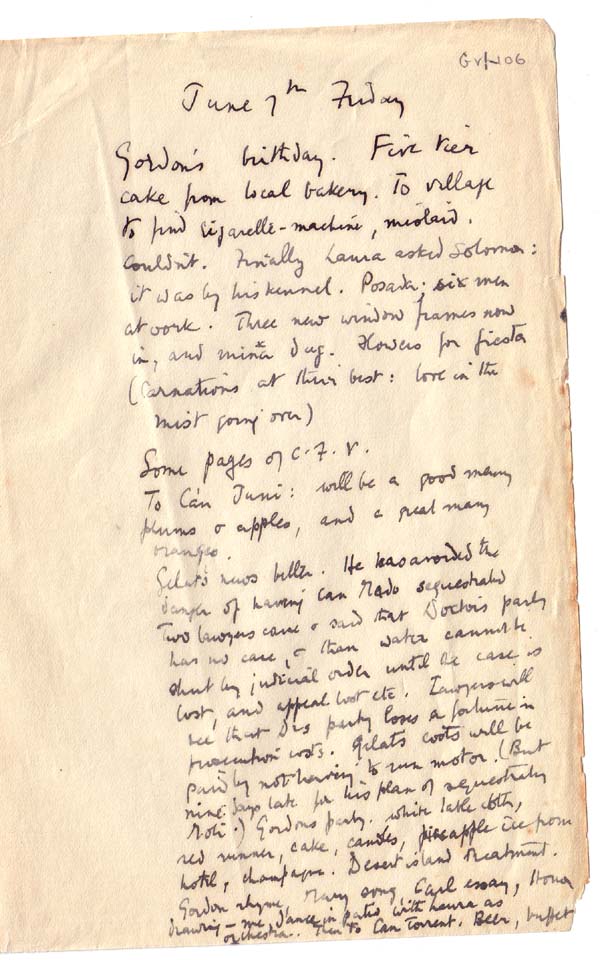 GVR-106
June 7th Friday
Gordon's birthday. Five tier
cake from local bakery. To village
to find cigarette-machine, mislaid.
Couldn't. Finally Laura asked Solomon:
it was by his kennel. Posada; six men
at work. Three new window frames now
in, and mina dug. Flowers for fiesta
(Carnations at their best: love in the
mist going over)
Some pages of C.F.V.
To Ca'n Tuni: will be a good many
plums & apples, and a great many
oranges.
Gelat's news better. He has avoided the
danger of having Can Mado sequestrated
Two lawyers came & said that Doctor's party
has no case, & that water cannot be
shut by judicial order until the case is
lost, and appeal lost etc. Lawyers will
see that Drs party loses a fortune in
prosecution costs. Gelat's costs will be
paid by not having to run motor. (But
nine days late for his plan of sequestrating
.) Gordons party. white table cloth,
red runner, cake, candles, pineapple ice from
hotel, champagne. Desert island treatment.
Gordon rhyme, Mary song, Carl essay, Honor
drawing - me dance in patio with Laura as
orchestra. Then to Can Torrent. Beer, buffet